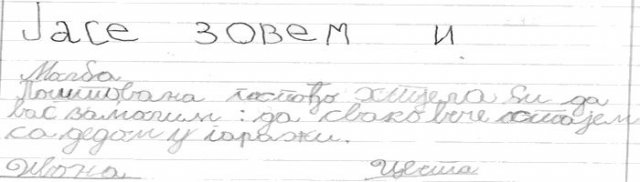 Јасе зовем и
Молба
Поштована господо хтијела би да
вас замолим : да свако вече остајем
са дедом у гаражи.
Ивона